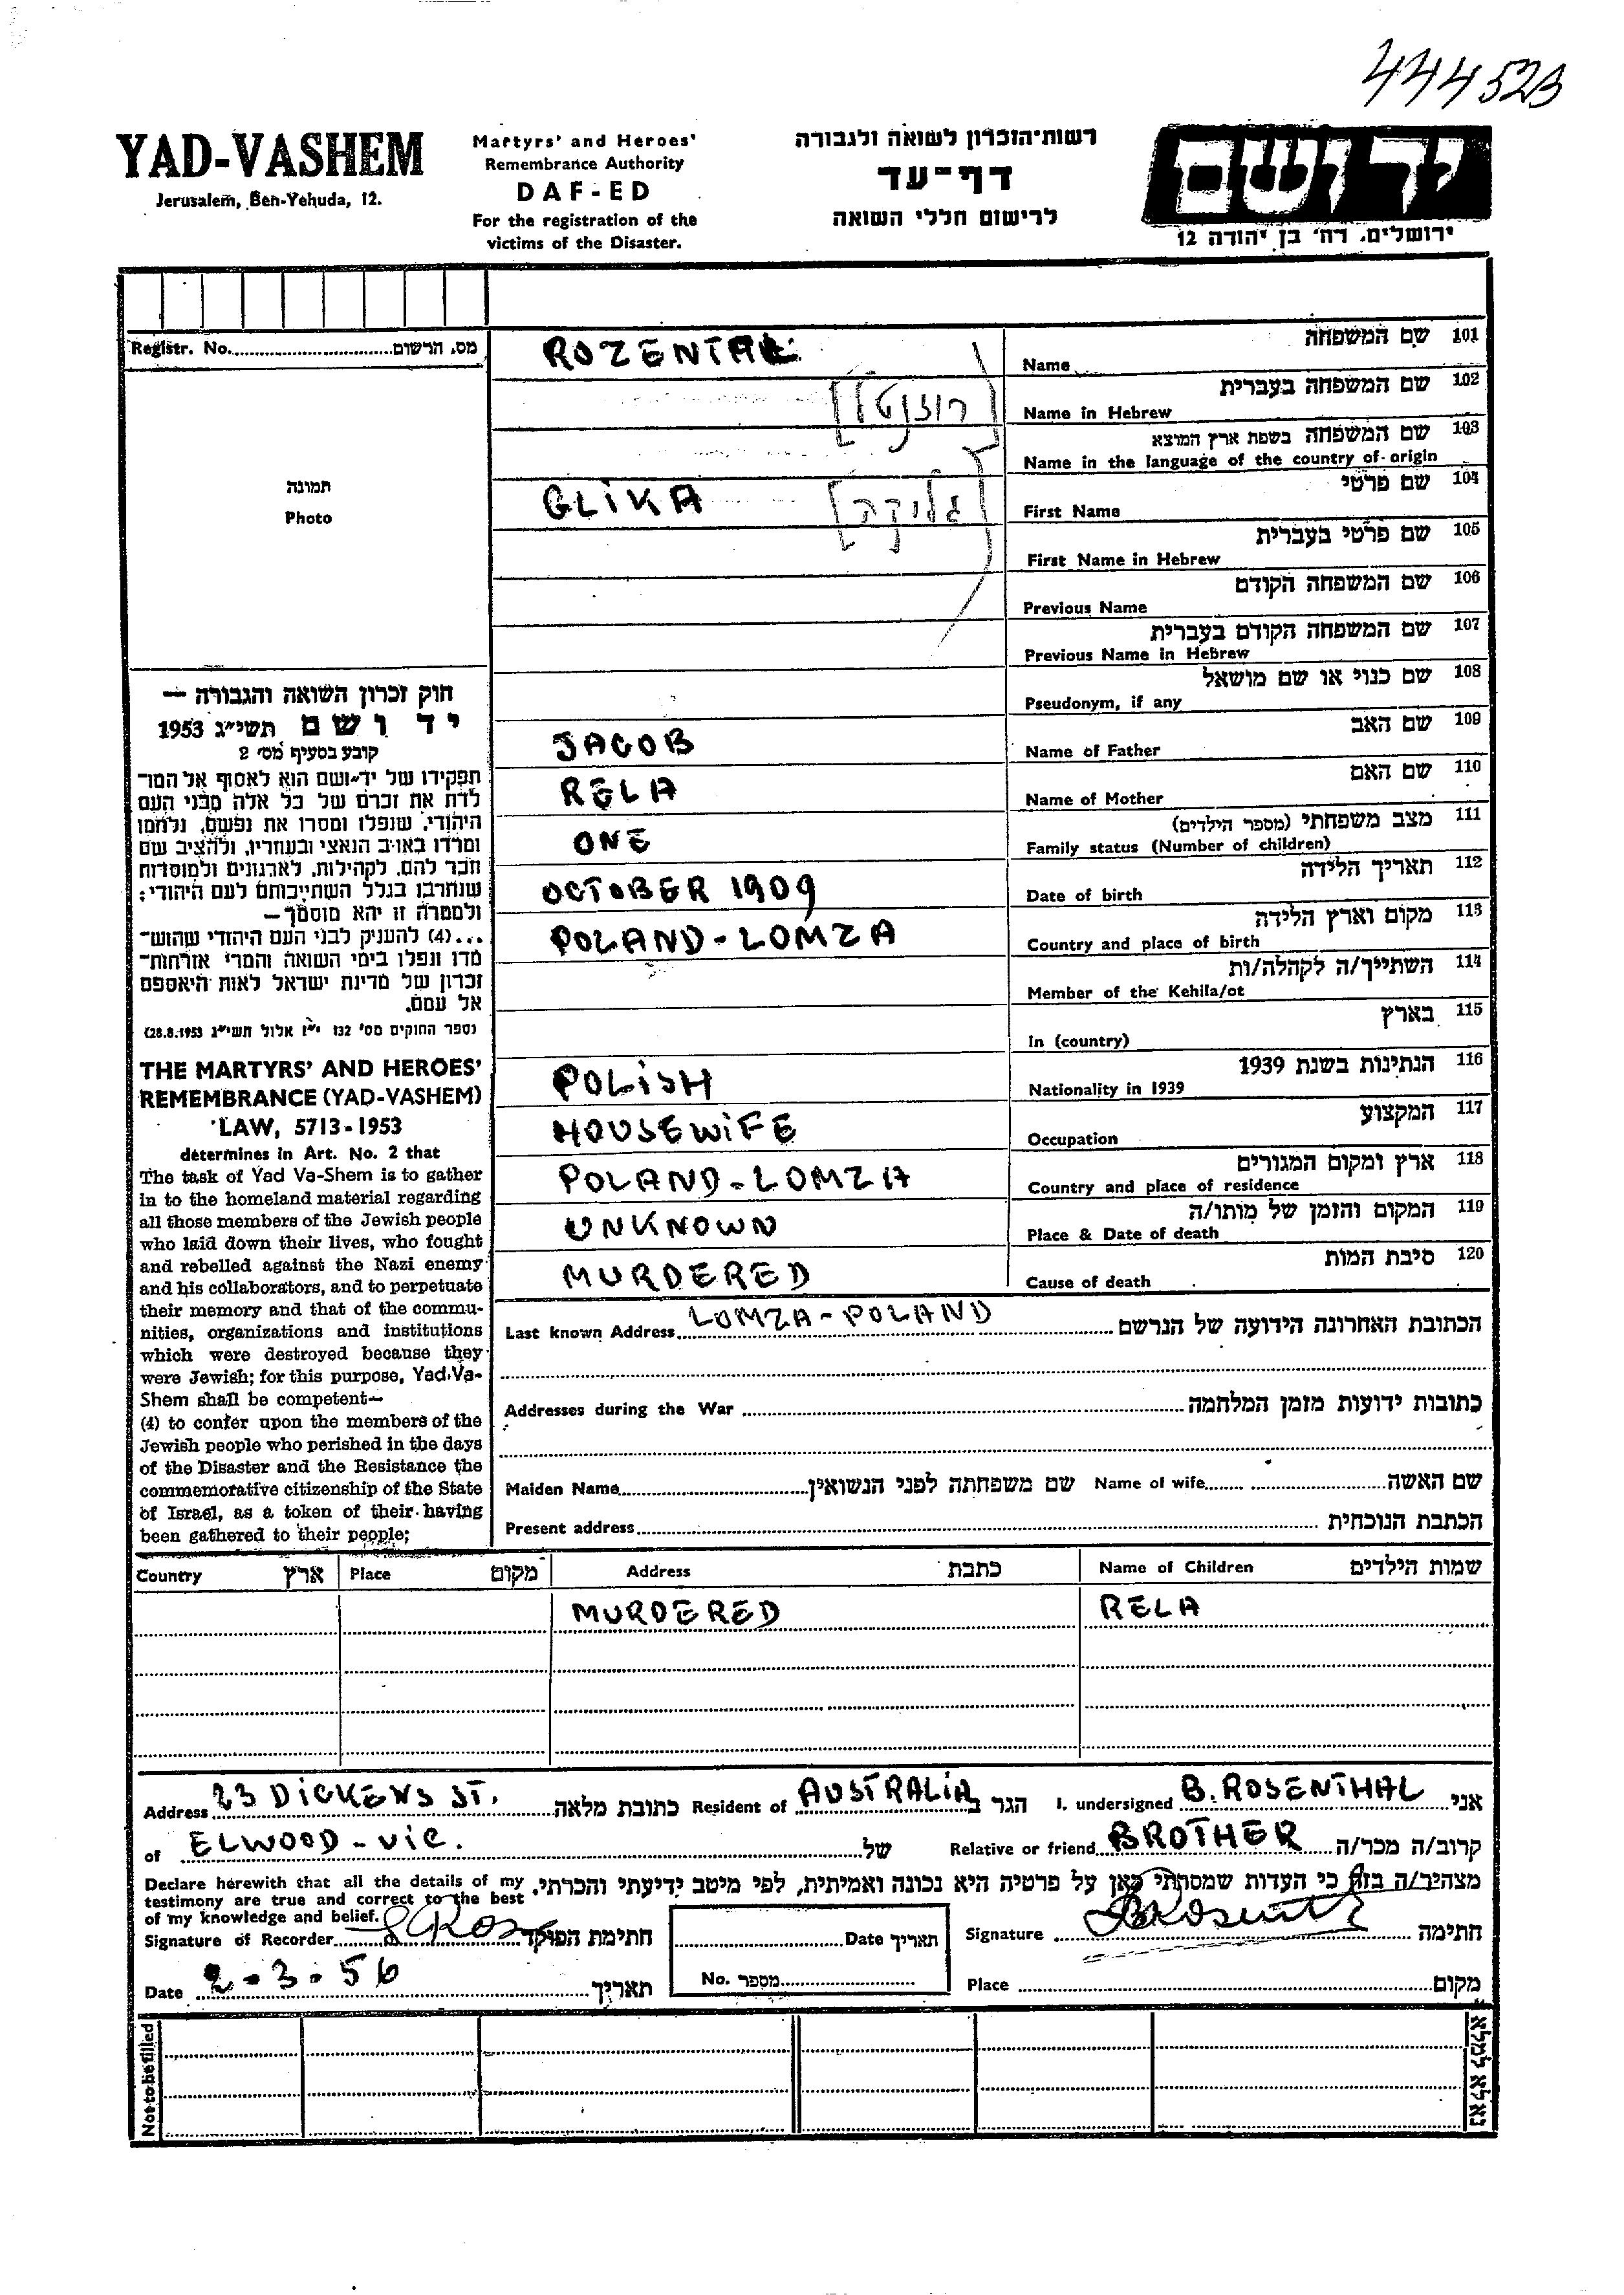 444523
YAD-VASHEM
Jerusalem, Ben-Yehuda, 12.
Martyrs' and Heroes'
Remembrance Authority
DAF-ED
For the registration of the
victims of the Disaster.
רשות־הזכרון לשואה ולגבורה
דף־עד
לרישום חללי השואה
ידושם
ירושלים, רח' בן יהודה 12
Registr. No. מס. הרשום
תמונה
Photo
חוק זכרון השואה והגבורה —
יד ושם תשי״ג 1953
קובע בסעיף מס׳ 2
תפקידו של יד־ושם הוא לאסוף אל המו־
לדת את זכרם של כל אלה מבני העם
היהודי, שנפלו ומסרו את נפשם, נלחמו
ומרדו באויב הנאצי ובעוזריו, ולהציב שם
וזכר להם, לקהילות, לארגונים ולמוסדות
שנחרבו בגלל השתייכותם לעם היהודי;
ולמטרה זו יהא מוסמך—
...(4) להעניק לבני העם היהודי שהוש־
מדו ונפלו בימי השואה והמרי אזרחות־
זכרון של מדינת ישראל לאות היאספם
אל עמם.
(ספר החוקים מס׳ 132 י״ז אלול תשי״ג 28.8.1953)
THE MARTYRS' AND HEROES'
REMEMBRANCE (YAD-VASHEM)
LAW, 5713-1953
determines in Art. No. 2 that
The task of Yad Va-Shem is to gather
in to the homeland material regarding
all those members of the Jewish people
who laid down their lives, who fought
and rebelled against the Nazi enemy
and his collaborators, and to perpetuate
their memory and that of the commu-
nities, organizations and institutions
which were destroyed because they
were Jewish; for this purpose, Yad-Va-
Shem shall be competent—
(4) to confer upon the members of the
Jewish people who perished in the days
of the Disaster and the Resistance the
commemorative citizenship of the State
of Israel, as a token of their having
been gathered to their people;
ROZENTAL Name שם המשפחה 101
[רוזנטל] Name in Hebrew שם המשפחה בעברית 102
Name in the language of the country of origin שם המשפחה בשפת ארץ המוצא 103
GLIKA [גליקה] First Name שם פרטי 104
First Name in Hebrew שם פרטי בעברית 105
Previous Name שם המשפחה הקודם 106
Previous Name in Hebrew שם המשפחה הקודם בעברית 107
Pseudonym, if any שם כנוי או שם מושאל 108
JACOB Name of Father שם האב 109
RELA Name of Mother שם האם 110
ONE Family status (Number of children) מצב משפחתי (מספר הילדים) 111
OCTOBER 1909 Date of birth תאריך הלידה 112
POLAND-LOMZA Country and place of birth מקום וארץ הלידה 113
Member of the Kehila/ot השתייך/ה לקהלה/ות 114
In (country) בארץ 115
POLISH Nationality in 1939 הנתינות בשנת 1939 116
HOUSEWIFE Occupation המקצוע 117
POLAND-LOMZA Country and place of residence ארץ ומקום המגורים 118
UNKNOWN Place & Date of death המקום והזמן של מותו/ה 119
MURDERED Cause of death סיבת המות 120
Last known Address LOMZA-POLAND הכתובת האחרונה הידועה של הנרשם
Addresses during the War כתובות ידועות מזמן המלחמה
Maiden Name שם משפחתה לפני הנשואין Name of wife שם האשה
Present address הכתבת הנוכחית
Country ארץ Place מקום Address כתבת Name of Children שמות הילדים
MURDERED RELA
Address 23 DICKENS ST. כתובת מלאה Resident of AUSTRALIA הגר ב I, undersigned B. ROSENTHAL אני
of ELWOOD-VIC. של Relative or friend BROTHER קרוב/ה מכר/ה
Declare herewith that all the details of my
testimony are true and correct to the best
of my knowledge and belief.
מצהיר/ה בזה כי העדות שמסרתי כאן על פרטיה היא נכונה ואמיתית, לפי מיטב ידיעתי והכרתי.
Signature of Recorder חתימת הפוקד Date תאריך Signature חתימה
Date 2-3-56 תאריך No. מספר Place מקום
Not to be filled
נא לא למלא